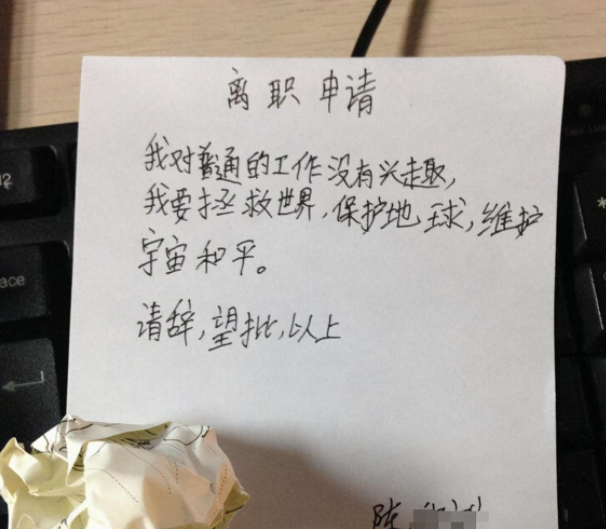 离职申请
我对普通的工作没有兴趣,
我要拯救世界,保护地球,维护
宇宙和平。
请辞,望批,以上
陈
ace
*